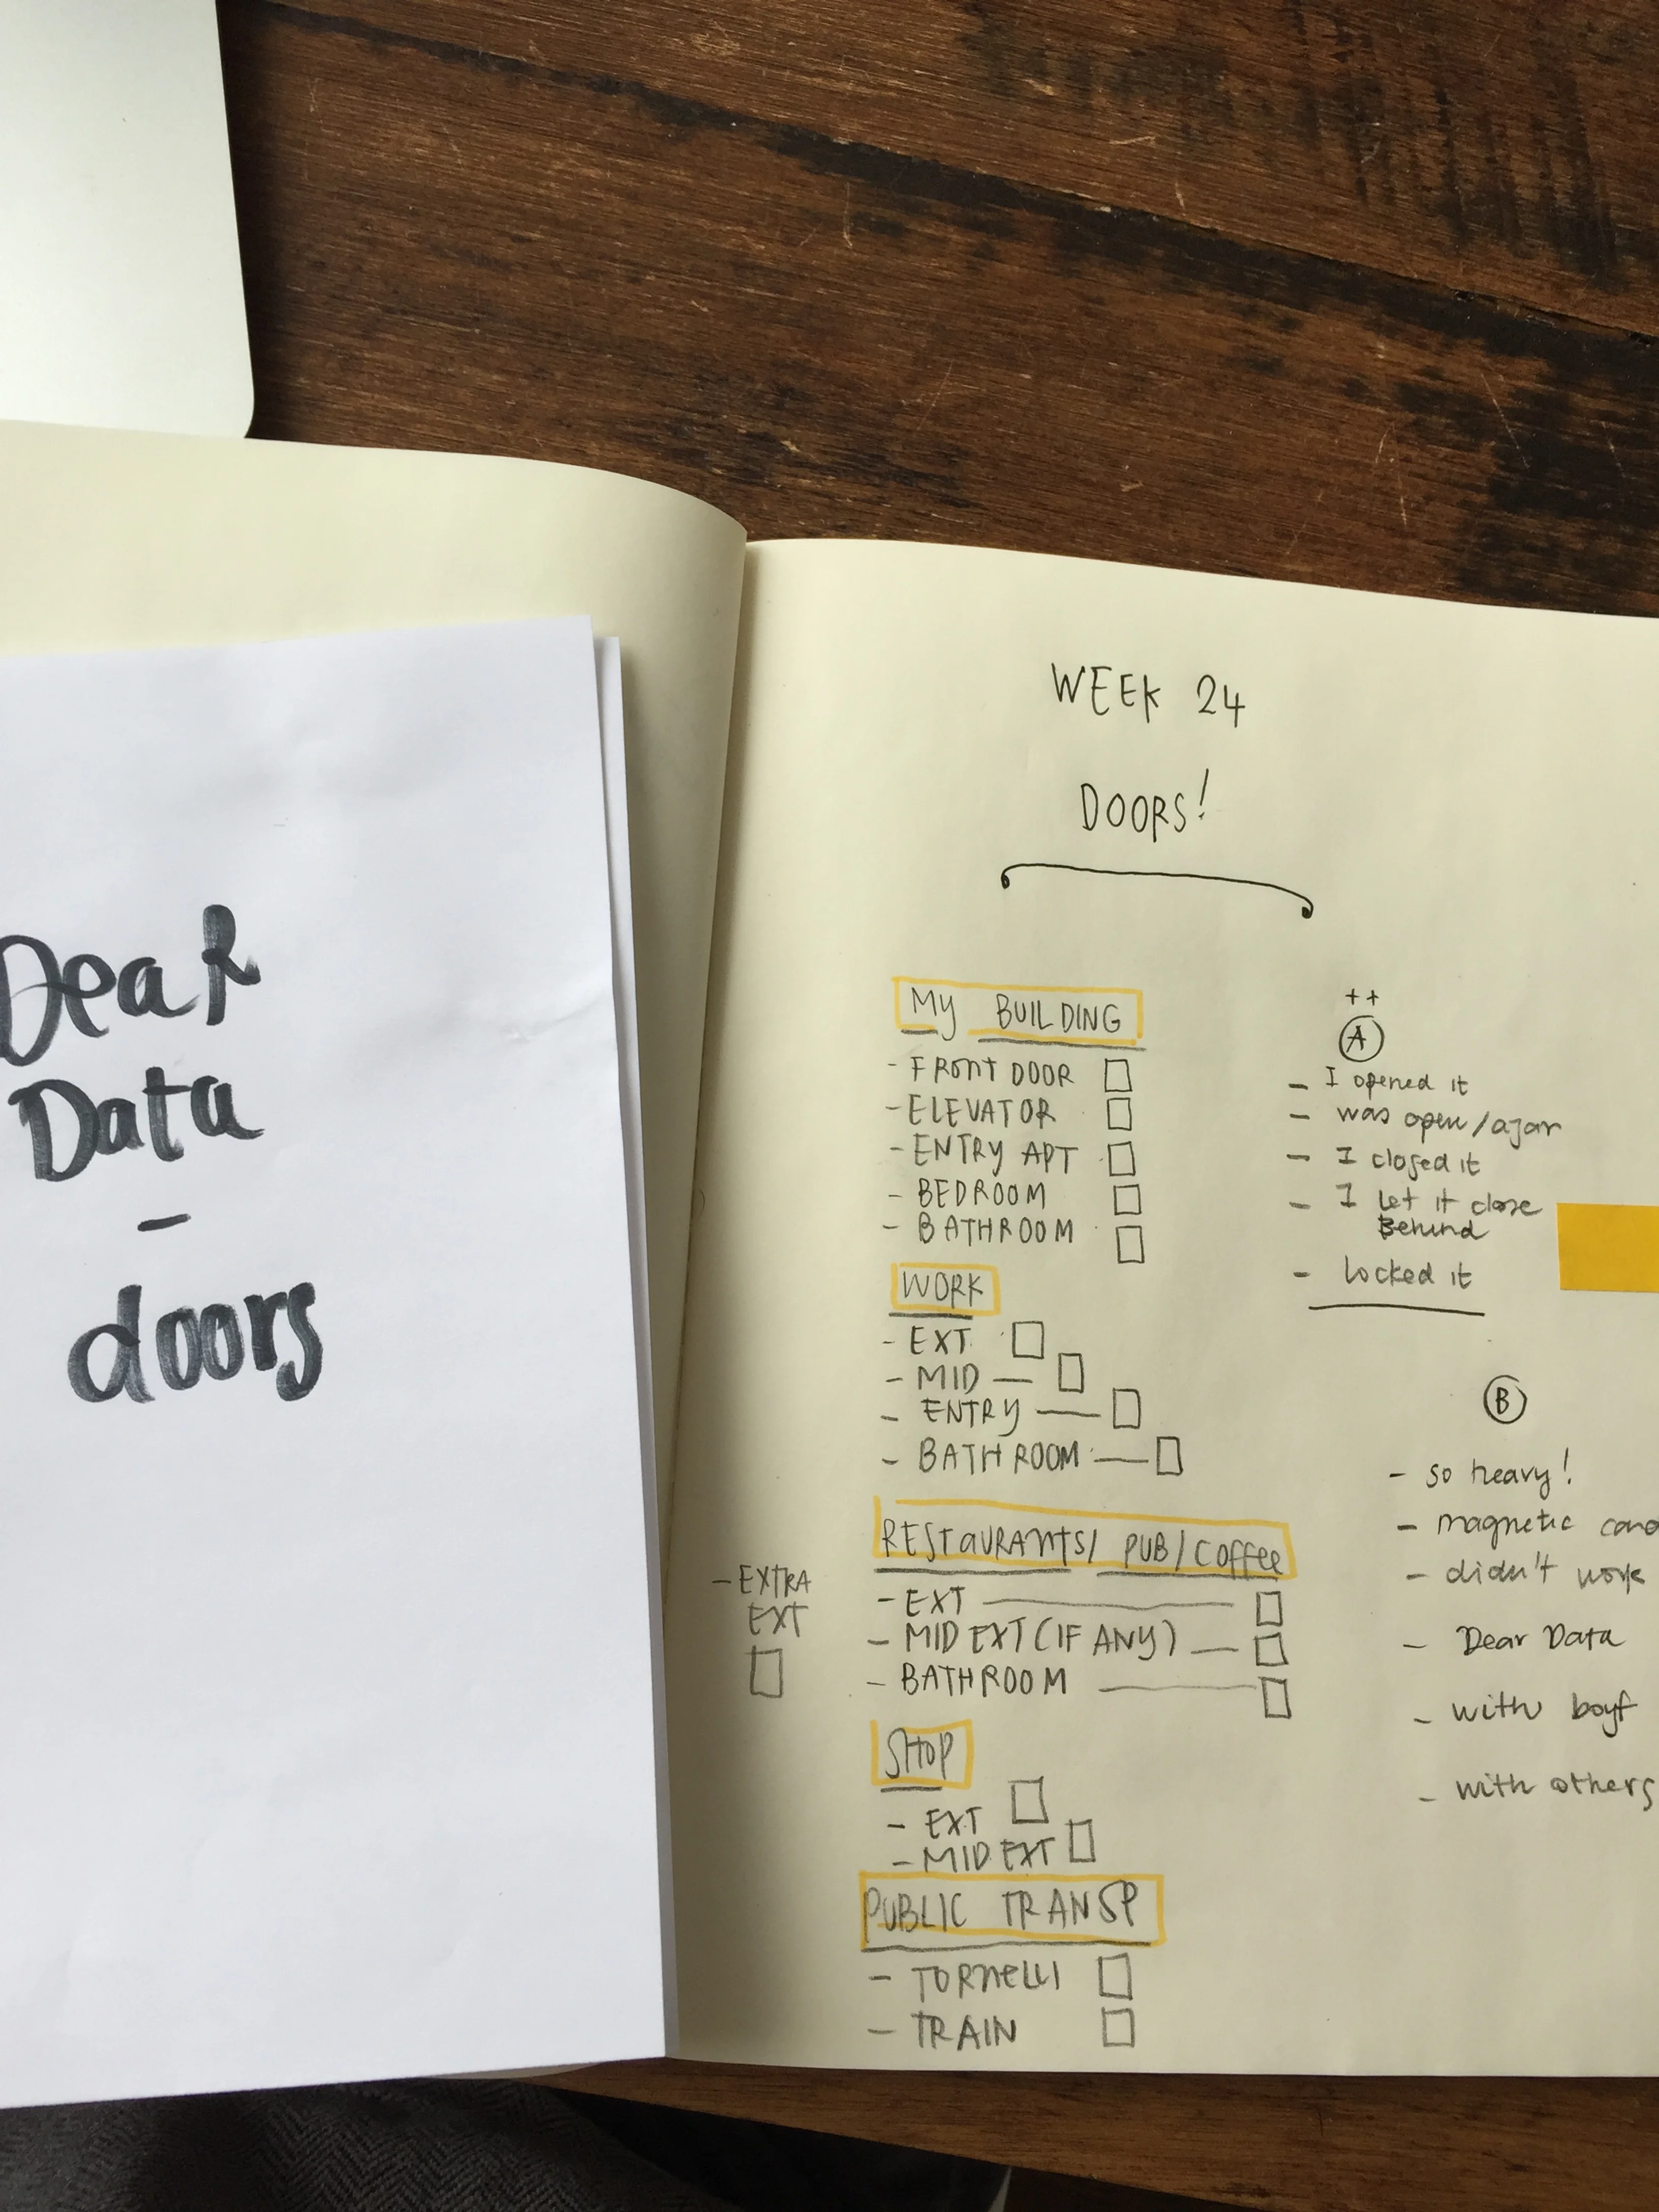 Dear
Data
-
doors
WEEK 24
DOORS!
MY BUILDING
- FRONT DOOR
- ELEVATOR
- ENTRY APT
- BEDROOM
- BATHROOM
WORK
- EXT
- MID
- ENTRY
- BATHROOM
RESTAURANTS/ PUB/COFFEE
- EXT
- MID EXT (IF ANY)
- BATHROOM
- EXTRA
EXT
SHOP
- EXT
- MID EXT
PUBLIC TRANSP
- TORNELLI
- TRAIN
++
A
- I opened it
- was open/ajar
- I closed it
- I let it close
Behind
- locked it
B
- so heavy!
- magnetic
- didn't work
- Dear Data
- with boyf
- with others